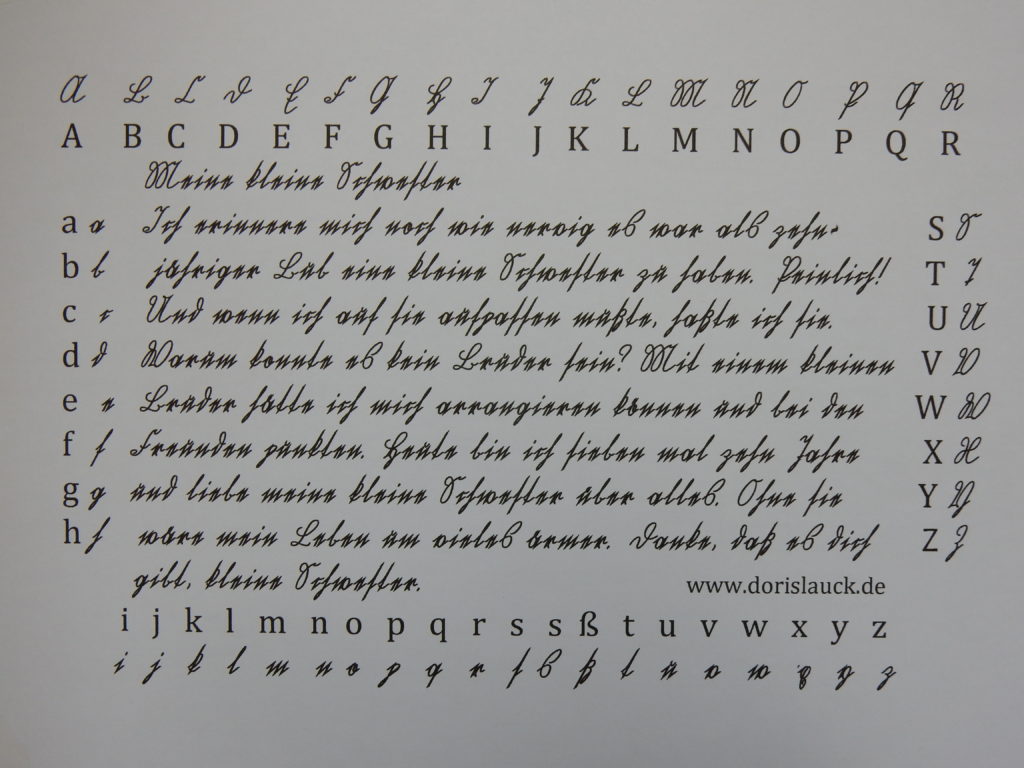 A B C D E F G H I J K L M N O P Q R
A B C D E F G H I J K L M N O P Q R
Meine kleine Schwester
a a Ich erinnere mich noch wie nervig es war als zehn- S S
b b jähriger Bub eine kleine Schwester zu haben. Peinlich! T T
c c Und wenn ich auf sie aufpassen mußte, haßte ich sie. U U
d d Warum konnte es kein Bruder sein? Mit einem kleinen V V
e e Bruder hätte ich mich arrangieren können und bei den W W
f f Freunden punkten. Heute bin ich sieben mal zehn Jahre X X
g g und liebe meine kleine Schwester über alles. Ohne sie Y Y
h h wäre mein Leben um vieles ärmer. Danke, daß es dich Z Z
gibt, kleine Schwester. www.dorislauck.de
i j k l m n o p q r s s ß t u v w x y z
i j k l m n o p q r ſ s ß t u v w x y z